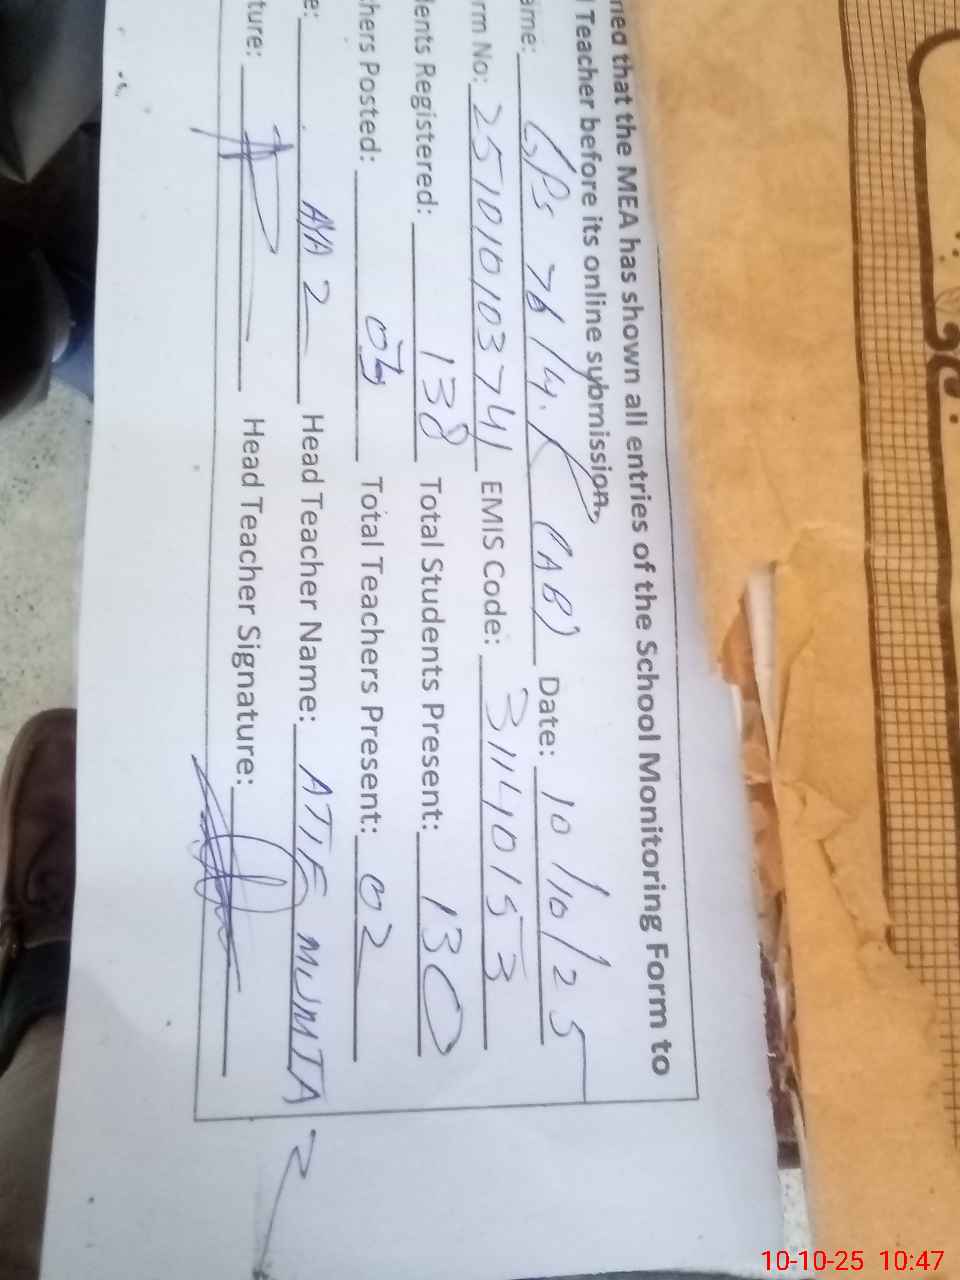 ned that the MEA has shown all entries of the School Monitoring Form to
Teacher before its online submission.
ame: GPS 76/4.R (AB) Date: 10/10/25
rm No: 2510101037441 EMIS Code: 31140153
lents Registered: 138 Total Students Present: 130
hers Posted: Total Teachers Present: 02
e: Head Teacher Name: ATIF MUMTAZ
ture: Head Teacher Signature:
10-10-25 10:47